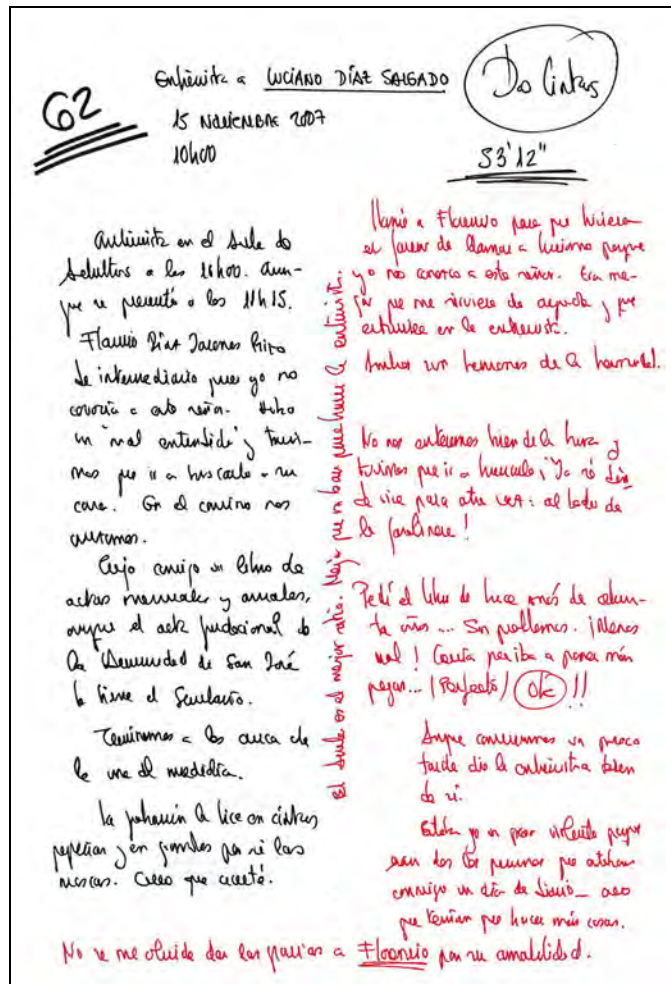 62
Entrevista a LUCIANO DÍAZ SALGADO
15 NOVIEMBRE 2007
10h00
Dos Cintas
53'12"
entrevista en el Aula de
Adultos a las 10h00. Aun-
que se presentó a las 11h15.
Díaz hizo
de intermediario pues yo no
conocía a este señor. Hubo
un "mal entendido" y tuvi-
mos que ir a buscarlo a su
casa. En el camino nos
cruzamos.
Trajo consigo un libro de
actas mensuales y anuales,
aunque el acta fundacional de
la Hermandad de San José
la tiene el Secretario.
Terminamos a las cerca de
la una del mediodía.
La grabación la hice en cintas
pequeñas y en grandes por si las
moscas. Creo que acerté.
El Aula es el mejor sitio. Mejor que un bar para hacer la entrevista.
Llamé a para que hiciera
el favor de llamar a Luciano porque
yo no conozco a este señor. Era me-
jor que me sirviese de ayuda y que
estuviese en la entrevista.
Ambos son hermanos de la hermandad.
No nos enteramos bien de la hora y
tuvimos que ir a buscarlo ¡Ya sé dón-
de vive para otra vez: al lado de
la gasolinera!
Pedí el libro de hace más de
años... Sin problemas. ¡Menos
mal! Creía que iba a poner más
pegas... (Perfecto) OK!!
Aunque comenzamos un poco
tarde dio la entrevista bien
de sí.
Estaba yo un poco violento porque
eran dos las personas que
conmigo un día de diario_ creo
que tenían que hacer más cosas.
No se me olvide dar las gracias a por su amabilidad.